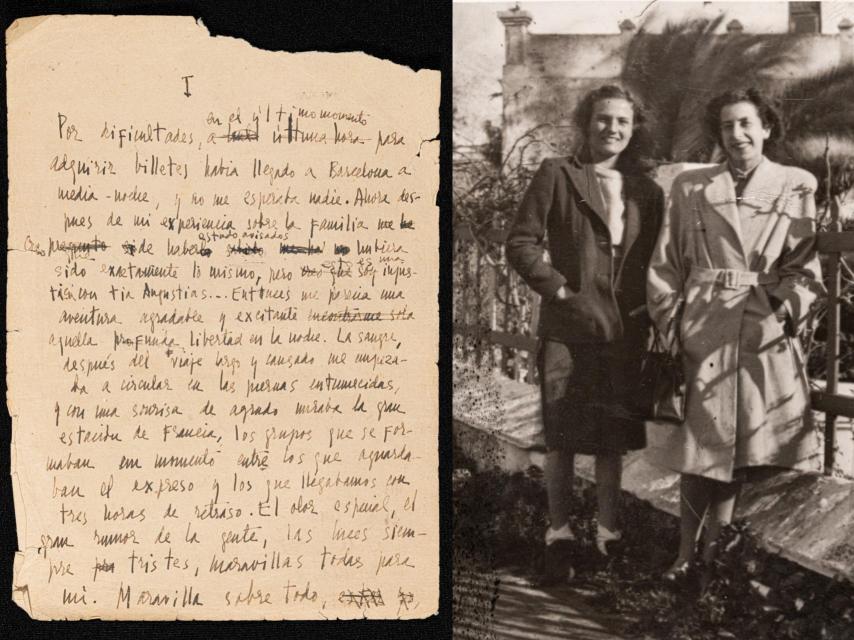 I
en el último momento
Por dificultades, a última hora para
adquirir billetes habia llegado a Barcelona a
media-noche, y no me esperaba nadie. Ahora des-
pues de mi experiencia sobre la familia me he
estado avisados
Creo pregunto si de haberlo sabido me ha no hubiera
esto es una
sido exactamente lo mismo, pero que soy injus-
ticia con tia Angustias... Entonces me parecia una
aventura agradable y excitante encontrarme sola
aquella profunda libertad en la noche. La sangre,
después del viaje largo y cansado me empeza-
ba a circular en las piernas entumecidas,
y con una sonrisa de agrado miraba la gran
estación de Francia, los grupos que se for-
maban en momentó entre los que aguarda-
ban el expreso y los que llegabamos con
tres horas de retraso. El olor especial, el
gran rumor de la gente, las luces siem-
pre tristes, maravillas todas para
mi. Maravilla sobre todo,